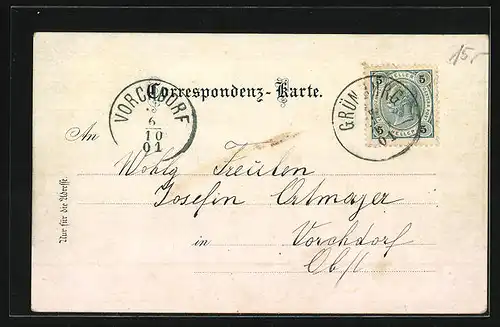 15.-
Correspondenz-Karte.
VORCHDORF
6
10
01
GRÜNBURG
01
5 5
HELLER
5 5
An
Wohlg Freulen
Josefin Ortmayer
in Vorchdorf
Ob/l
Nur für die Adresse.